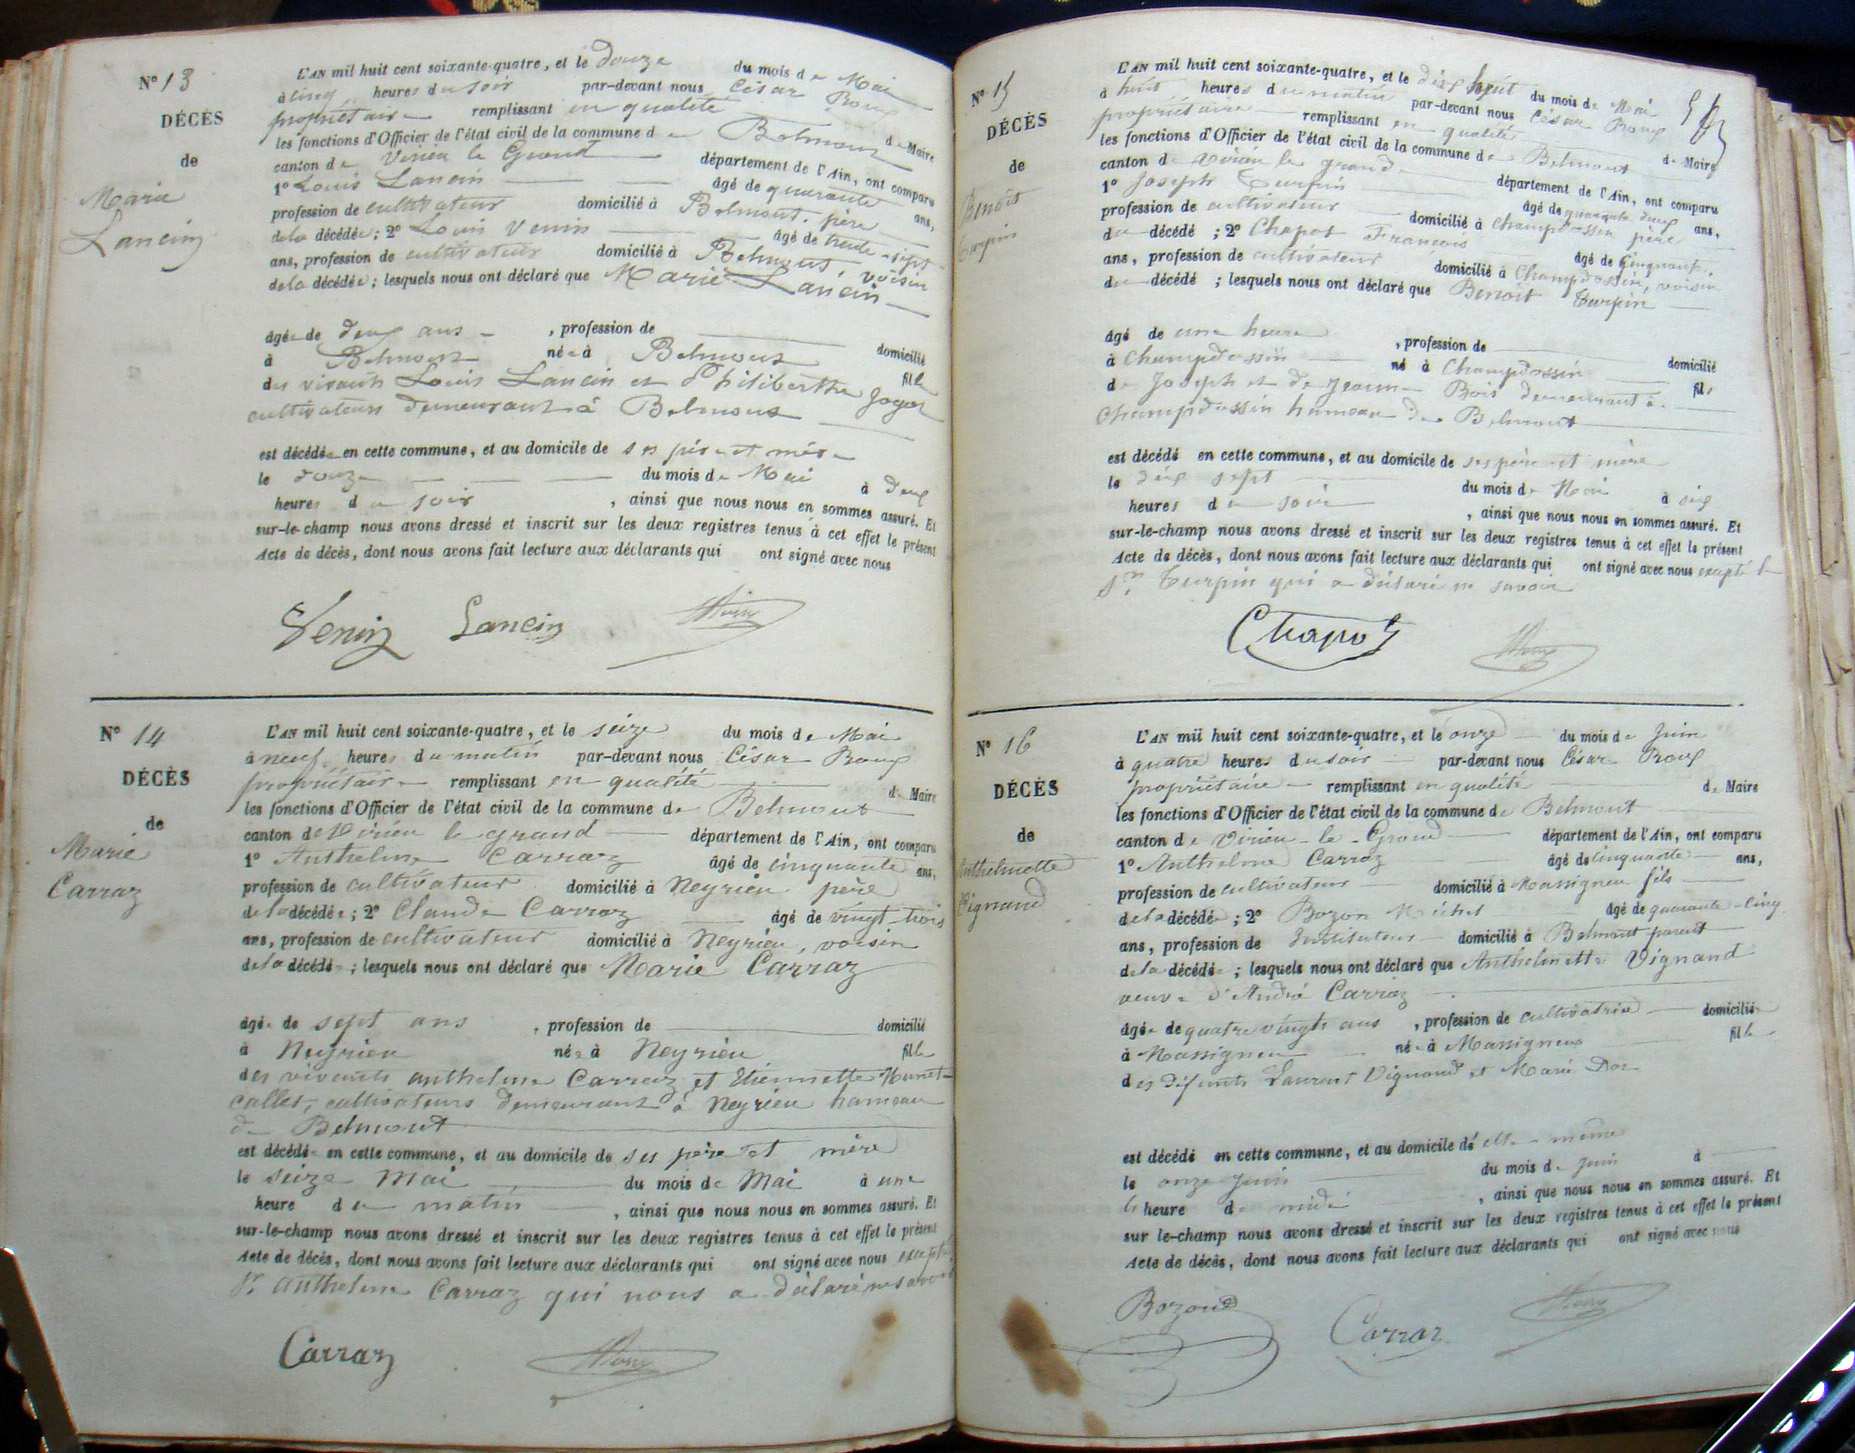 N° 13
DÉCÈS
de
Marie
Lancin
L'AN mil huit cent soixante-quatre, et le douze du mois de Mai
à cinq heures du soir par-devant nous César Roux
propriétaire remplissant en qualité de Maire
les fonctions d'Officier de l'état civil de la commune de Belmont
canton de Virieu le Grand département de l'Ain, ont comparu
1° Louis Lancin âgé de quarante ans,
profession de cultivateur domicilié à Belmont, père
de la décédée ; 2° Louis Venin âgé de trente-sept
ans, profession de cultivateur domicilié à Belmont, voisin
de la décédée ; lesquels nous ont déclaré que Marie Lancin
âgée de deux ans , profession de domicilié
à Belmont née à Belmont fille
des vivants Louis Lancin et Philiberthe Jogot
cultivateurs demeurant à Belmont
est décédée en cette commune, et au domicile de ses père et mère
le douze du mois de Mai à deux
heures du soir , ainsi que nous nous en sommes assuré. Et
sur-le-champ nous avons dressé et inscrit sur les deux registres tenus à cet effet le présent
Acte de décès, dont nous avons fait lecture aux déclarants qui ont signé avec nous
Venin Lancin Roux
N° 14
DÉCÈS
de
Marie
Carraz
L'AN mil huit cent soixante-quatre, et le seize du mois de Mai
à neuf heures du matin par-devant nous César Roux
propriétaire remplissant en qualité de Maire
les fonctions d'Officier de l'état civil de la commune de Belmont
canton de Virieu le grand département de l'Ain, ont comparu
1° Anthelme Carraz âgé de cinquante ans,
profession de cultivateur domicilié à Neyrieu père
de la décédée ; 2° Claude Carraz âgé de vingt-trois
ans, profession de cultivateur domicilié à Neyrieu, voisin
de la décédée ; lesquels nous ont déclaré que Marie Carraz
âgée de sept ans , profession de domicilié
à Neyrieu née à Neyrieu fille
des vivants anthelme Carraz et Etiennette
Callet, cultivateurs demeurant à Neyrieu hameau
de Belmont
est décédée en cette commune, et au domicile de ses père et mère
le seize Mai du mois de Mai à une
heure du matin , ainsi que nous nous en sommes assuré. Et
sur-le-champ nous avons dressé et inscrit sur les deux registres tenus à cet effet le présent
Acte de décès, dont nous avons fait lecture aux déclarants qui ont signé avec nous excepté
Sr anthelme Carraz qui nous a déclaré ne savoir
Carraz Roux
N° 15
DÉCÈS
de
Benoit
Turpin
L'AN mil huit cent soixante-quatre, et le dix huit du mois de Mai
à huit heures du matin par-devant nous César Roux
propriétaire remplissant en qualité de Maire
les fonctions d'Officier de l'état civil de la commune de Belmont
canton de Virieu le grand département de l'Ain, ont comparu
1° Joseph Turpin âgé de quarante deux ans,
profession de cultivateur domicilié à Champdossin père
du décédé ; 2° Chapot Francois âgé de cinquante
ans, profession de cultivateur domicilié à Champdossin, voisin
du décédé ; lesquels nous ont déclaré que Benoit Turpin
âgé de une heure , profession de domicilié
à Champdossin né à Champdossin fils
de Joseph et de Jeanne Bois demeurant à
Champdossin hameau de Belmont
est décédé en cette commune, et au domicile de ses père et mère
le dix sept du mois de Mai à six
heures du soir , ainsi que nous nous en sommes assuré. Et
sur-le-champ nous avons dressé et inscrit sur les deux registres tenus à cet effet le présent
Acte de décès, dont nous avons fait lecture aux déclarants qui ont signé avec nous excepté le
Sr Turpin qui a déclaré ne savoir
Chapot Roux
N° 16
DÉCÈS
de
Anthelmette
Vignand
L'AN mil huit cent soixante-quatre, et le onze du mois de Juin
à quatre heures du soir par-devant nous César Roux
propriétaire remplissant en qualité de Maire
les fonctions d'Officier de l'état civil de la commune de Belmont
canton de Virieu-le-Grand département de l'Ain, ont comparu
1° Anthelme Carraz âgé de cinquante ans,
profession de cultivateur domicilié à Massigneu fils
de la décédée ; 2° Bozon Michel âgé de quarante-cinq
ans, profession de Instituteur domicilié à Belmont parent
de la décédée ; lesquels nous ont déclaré que Anthelmette Vignand
veuve d'André Carraz
âgée de quatre vingts ans , profession de cultivatrice domiciliée
à Massigneu née à Massigneu fille
des défunts Laurent Vignand et Marie
est décédé en cette commune, et au domicile de elle-même
le onze Juin du mois de Juin à
heure de midi , ainsi que nous nous en sommes assuré. Et
sur le-champ nous avons dressé et inscrit sur les deux registres tenus à cet effet le présent
Acte de décès, dont nous avons fait lecture aux déclarants qui ont signé avec nous
Bozon Carraz Roux